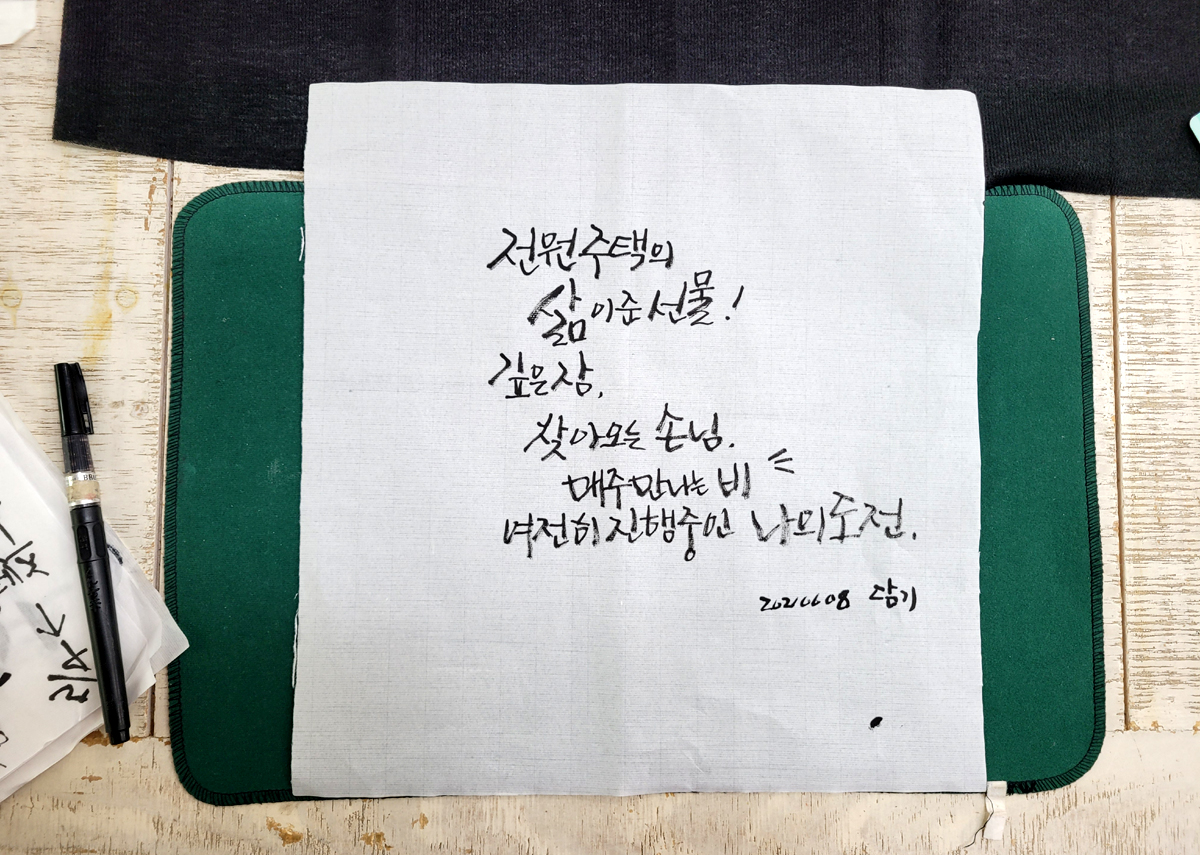 전원주택의
삶이 준 선물!
깊은 잠,
찾아오는 손님.
매주 만나는 비
여전히 진행중인 나의 도전.
20210608 담기